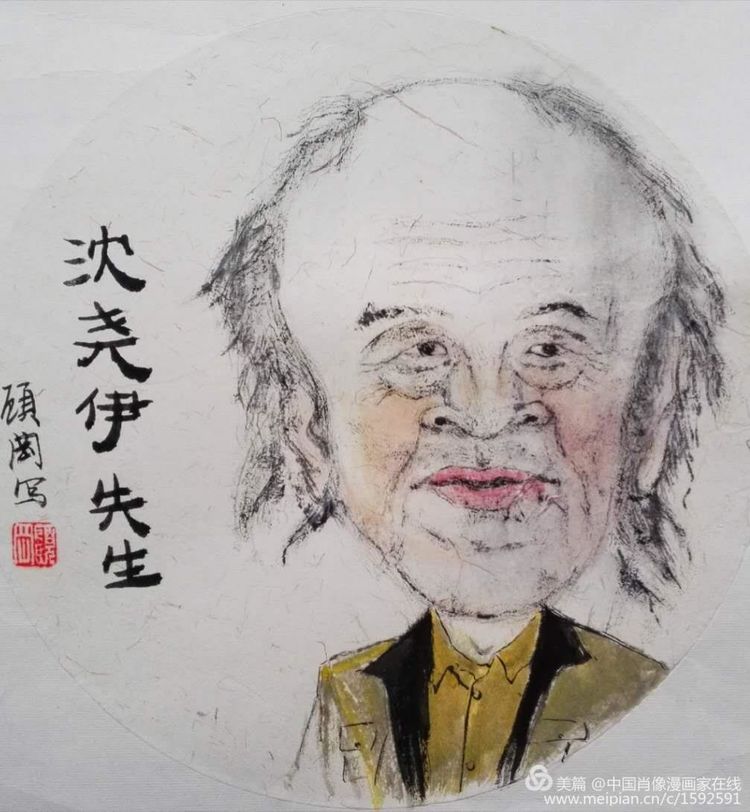 沈尧伊先生
顾冈写
美篇 @中国肖像漫画家在线
www.meipian.cn/c/1592591